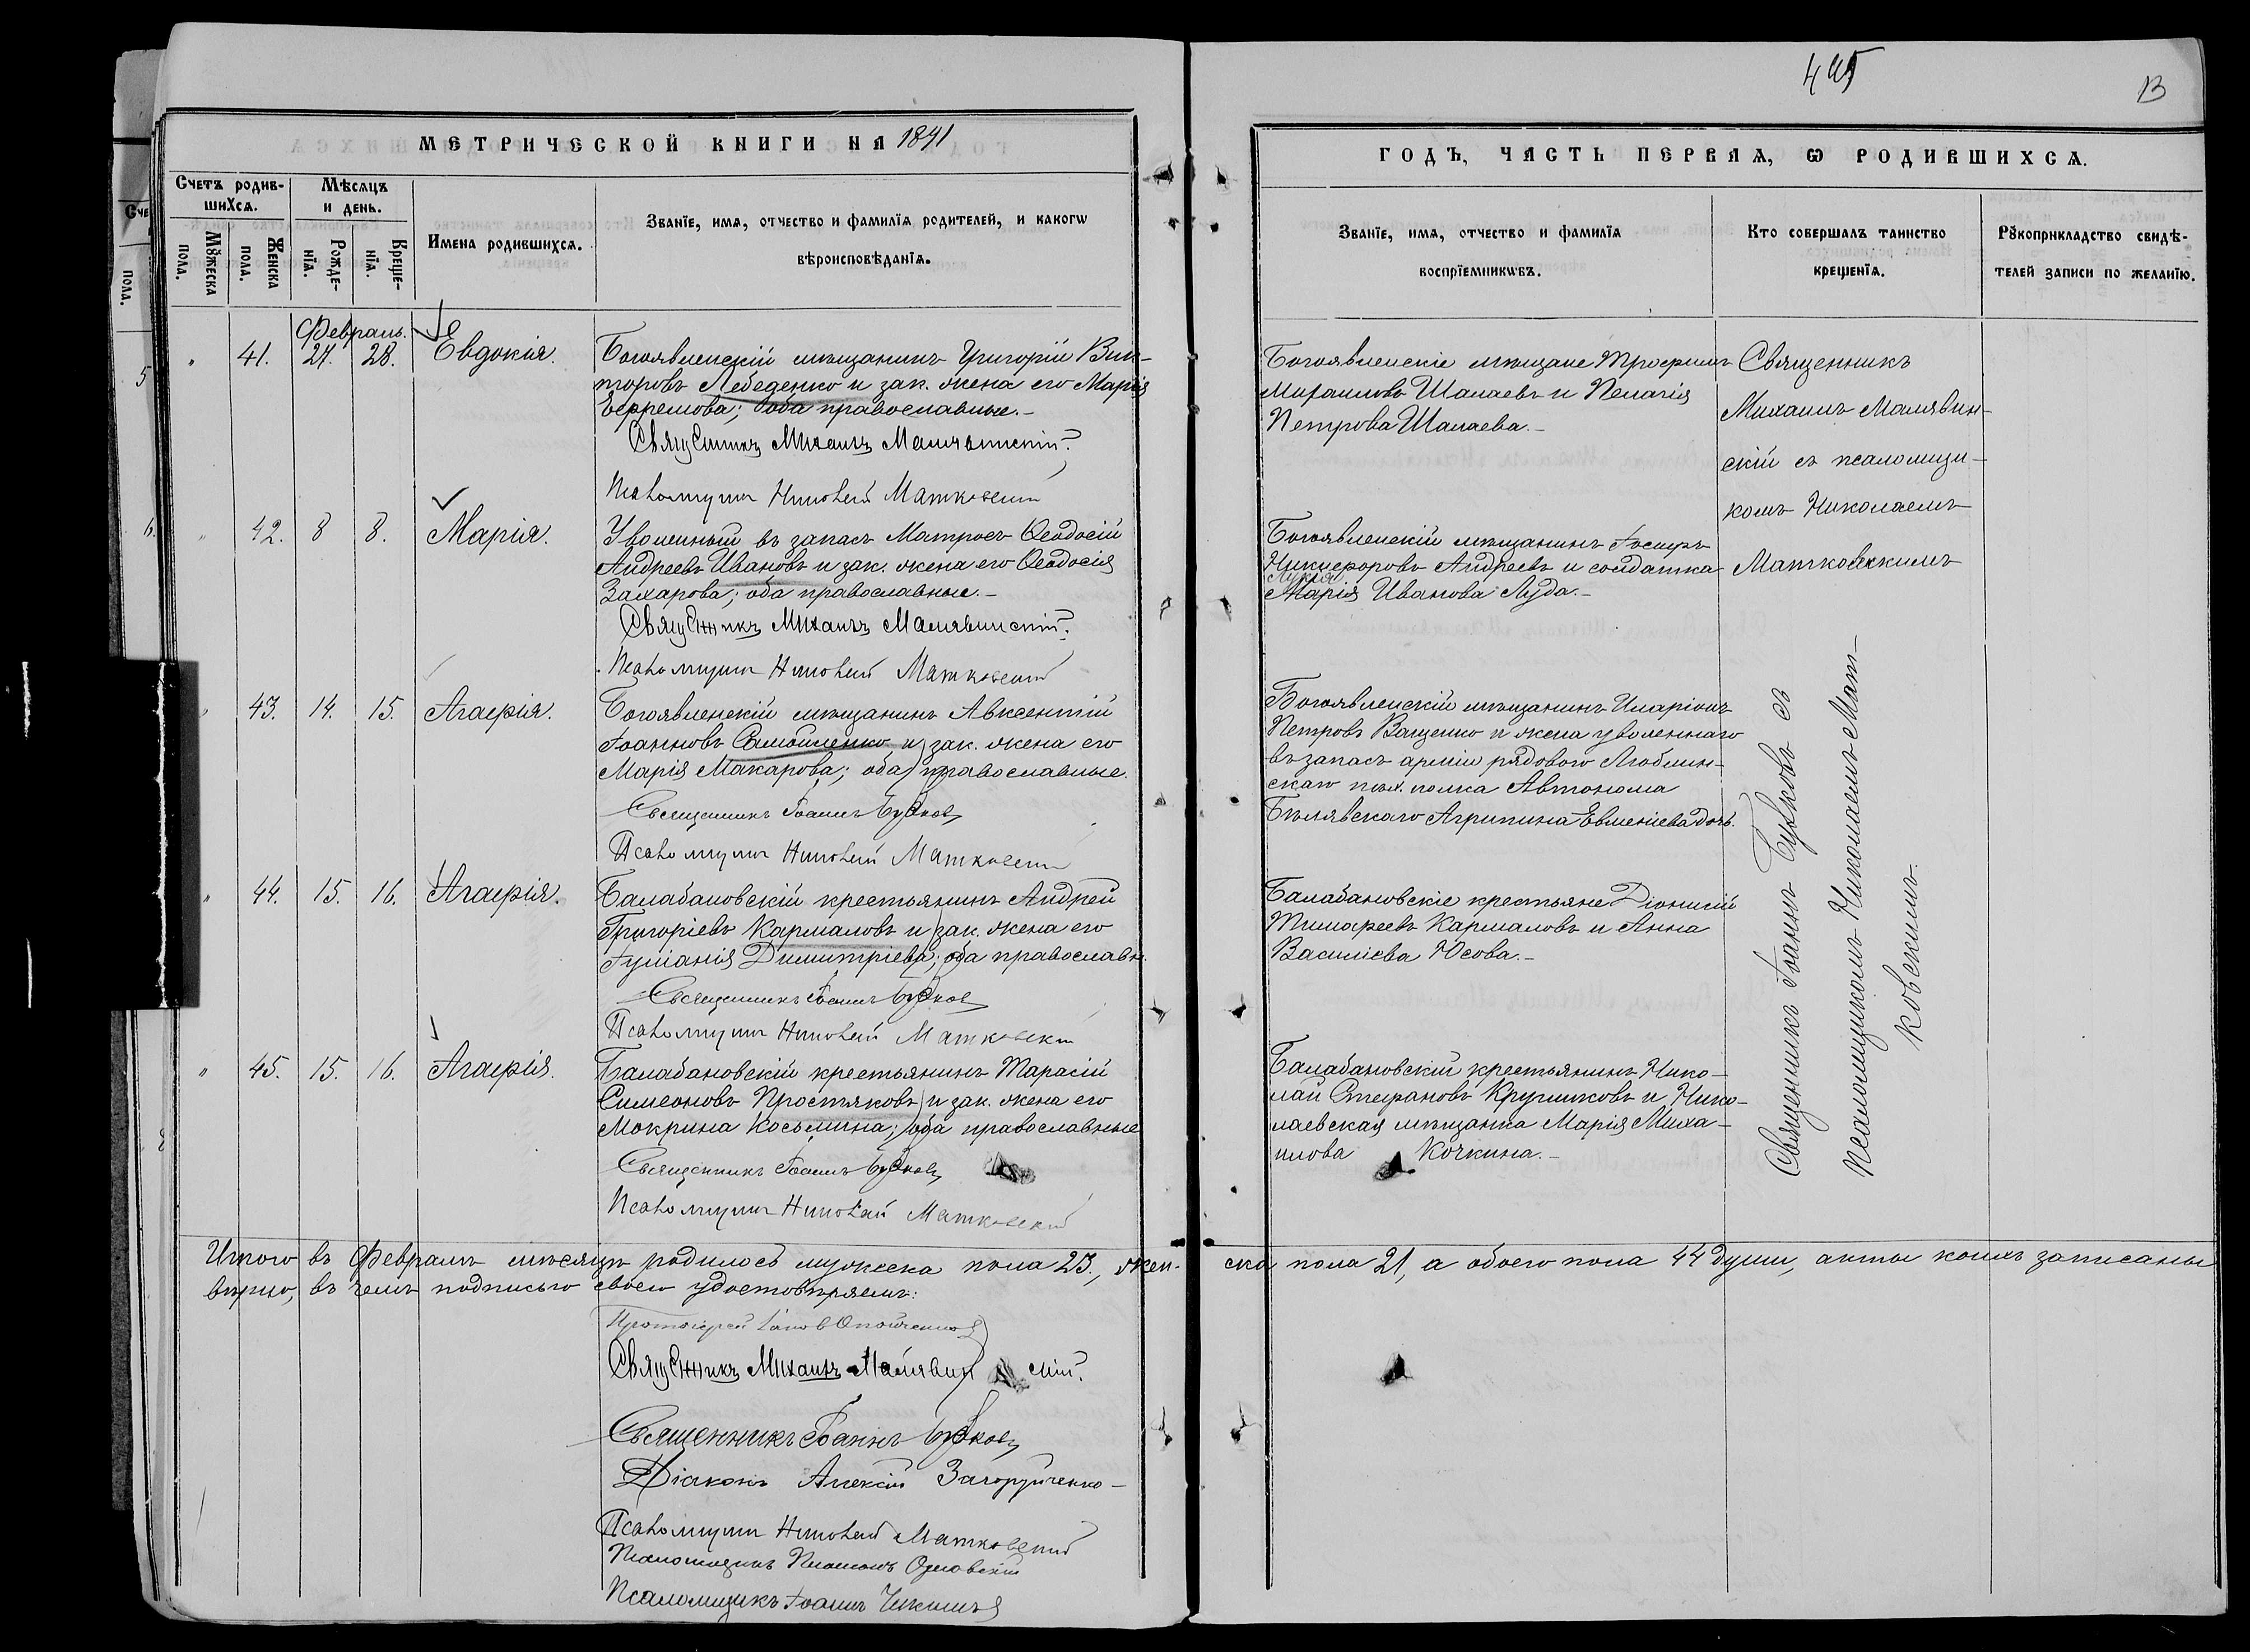 495
13
МЕТРИЧЕСКОЙ КНИГИ НА 1891
ГОДЪ, ЧАСТЬ ПЕРВАѦ, Ѡ РОДИВШИХСѦ.
Счетъ родив-
шихсѧ.
Мѣсѧцъ
и день.
Имена родившихсѧ.
Званїе, имѧ, отчество и фамилїѧ родителей, и какогѡ
вѣроисповѣданїѧ.
Мꙋжеска
пола.
Женска
пола.
Рожде-
нїѧ.
Креще-
нїѧ.
Званїе, имѧ, отчество и фамилїѧ
воспрїемникѡвъ.
Кто совершалъ таинство
крещенїѧ.
Рꙋкоприкладство свидѣ-
телей записи по желанїю.
Февраль.
" 41. 27. 28. Евдокія.
Богоявленскій мѣщанинъ Григорій Вик-
торовъ Лебеденко и зак. жена его Марія
Ефремова; оба православные.–
Священникъ Михаилъ Малявинскій
Псаломщикъ Николай Матковский
Богоявленскіе мѣщане Трофимъ
Михаиловъ Шалаевъ и Пелагія
Петрова Шалаева.–
Священникъ
Михаилъ Малявин-
скій съ псаломщи-
комъ Николаемъ
Матковскимъ
" 42. 8 8. Марія.
Уволенный въ запасъ Матросъ Ѳеодосій
Андреевъ Ивановъ и зак. жена его Ѳеодосія
Захарова; оба православные.–
Священникъ Михаилъ Малявинскій.
Псаломщикъ Николай Матковский
Богоявленскій мѣщанинъ Іосифъ
Никифоровъ Андреевъ и солдатка
Лукія
Марія Иванова Луда.–
" 43. 14. 15. Агафія.
Богоявленскій мѣщанинъ Авксентій
Іоанновъ Самойленко и зак. жена его
Марія Макарова; оба православные.
Священникъ Іоаннъ Бужковъ
Псаломщикъ Николай Матковский
Богоявленскій мѣщанинъ Иларіонъ
Петровъ Ващенко и жена уволеннаго
въ запасъ арміи рядового Люблин-
скаго пѣх. полка Автонома
Бѣлявскаго Агрипина Евменіева дочь.
Священникъ Іоаннъ Бужковъ съ
псаломщикомъ Николаемъ Мат-
ковскимъ
" 44. 15. 16. Агафія.
Балабановскій крестьянинъ Андрей
Григоріевъ Кармаловъ и зак. жена его
Іуліанія Димитріева; оба православн.
Священникъ Іоаннъ Бужковъ
Псаломщикъ Николай Матковский
Балабановскіе крестьяне Діонисій
Тимофеевъ Кармаловъ и Анна
Василіева Юсова.–
" 45. 15. 16. Агафія.
Балабановскій крестьянинъ Тарасій
Симеоновъ Простяковъ и зак. жена его
Мокрина Косьмина; оба православные
Священникъ Іоаннъ Бужковъ
Псаломщикъ Николай Матковский
Балабановскій крестьянинъ Нико-
лай Стефановъ Кругликовъ и Нико-
лаевская мѣщанка Марія Миха-
илова Кочкина.–
Итого въ Февралѣ мѣсяцѣ родилось мужеска пола 23, жен-
ска пола 21, а обоего пола 44 души, акты коихъ записаны
вѣрно, въ чемъ подписью своею удостовѣряемъ:
Протоіерей
Священникъ Михаилъ Малявинскій.
Священникъ Іоаннъ Бужковъ
Діаконъ Алексій Загоруйченко
Псаломщикъ Николай Матковский
Псаломщикъ
Псаломщикъ Іоаннъ